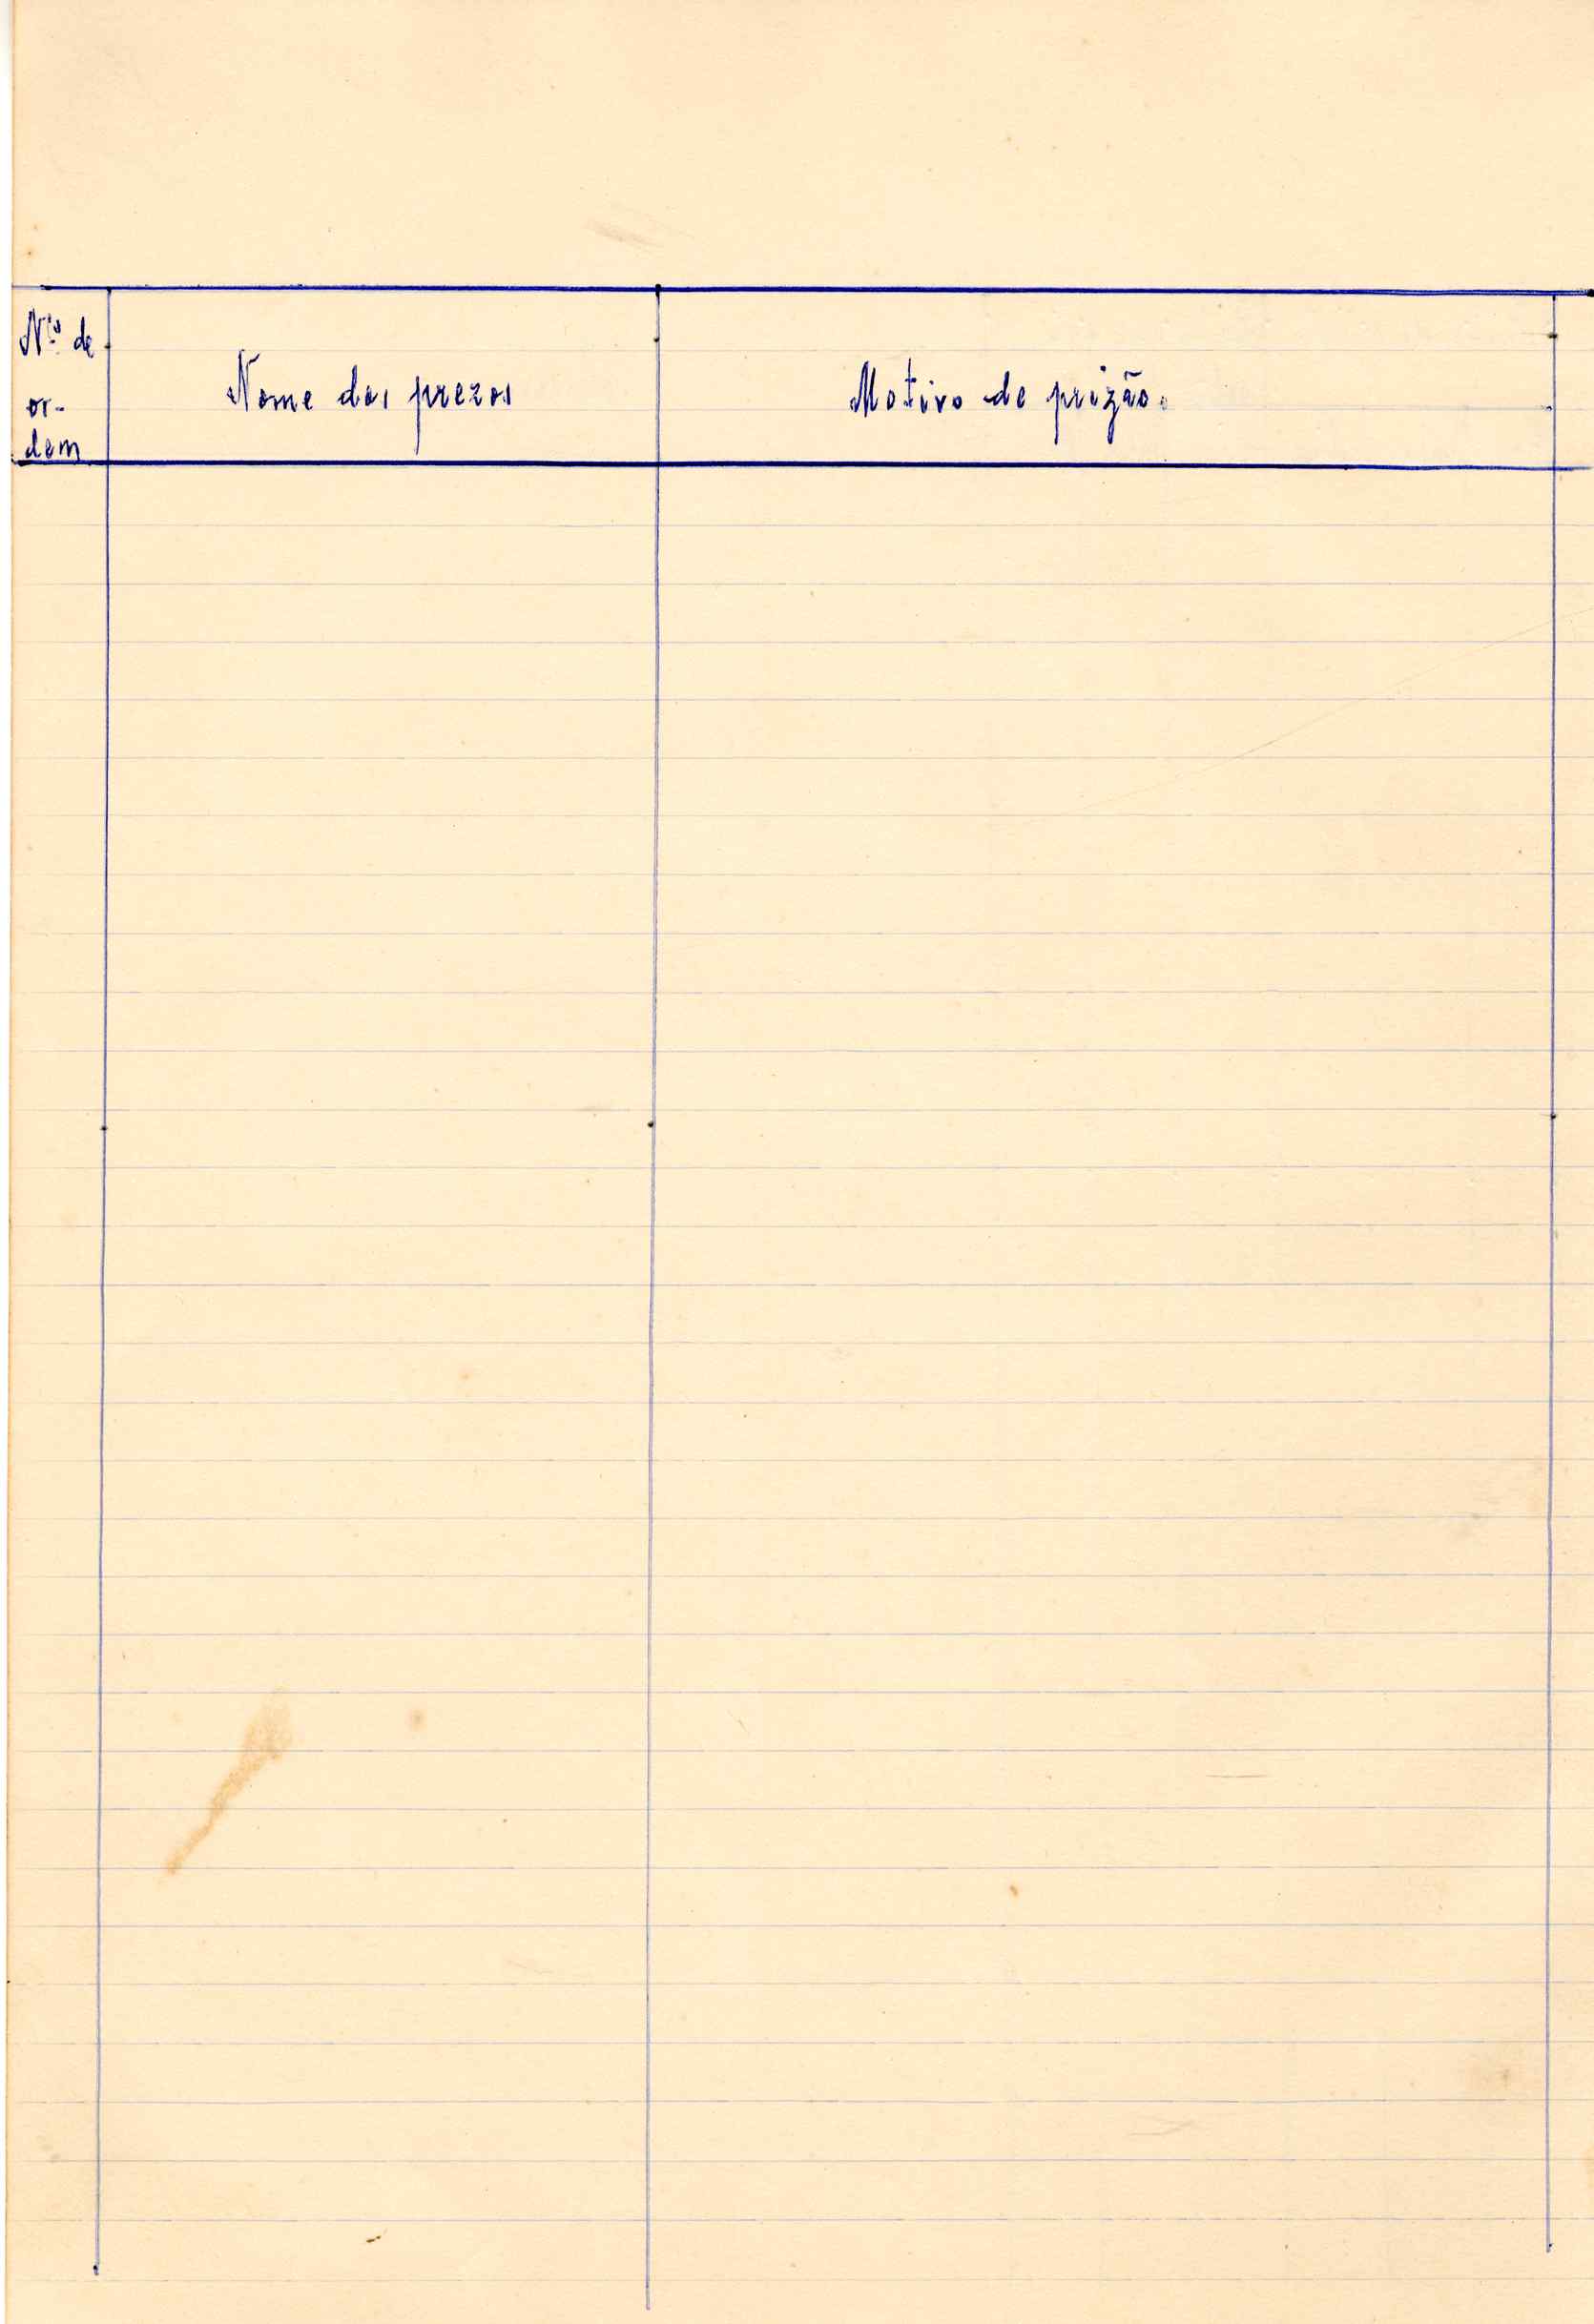 Nº de
or-
dem
Nome dos prezos
Motivo de prizão.